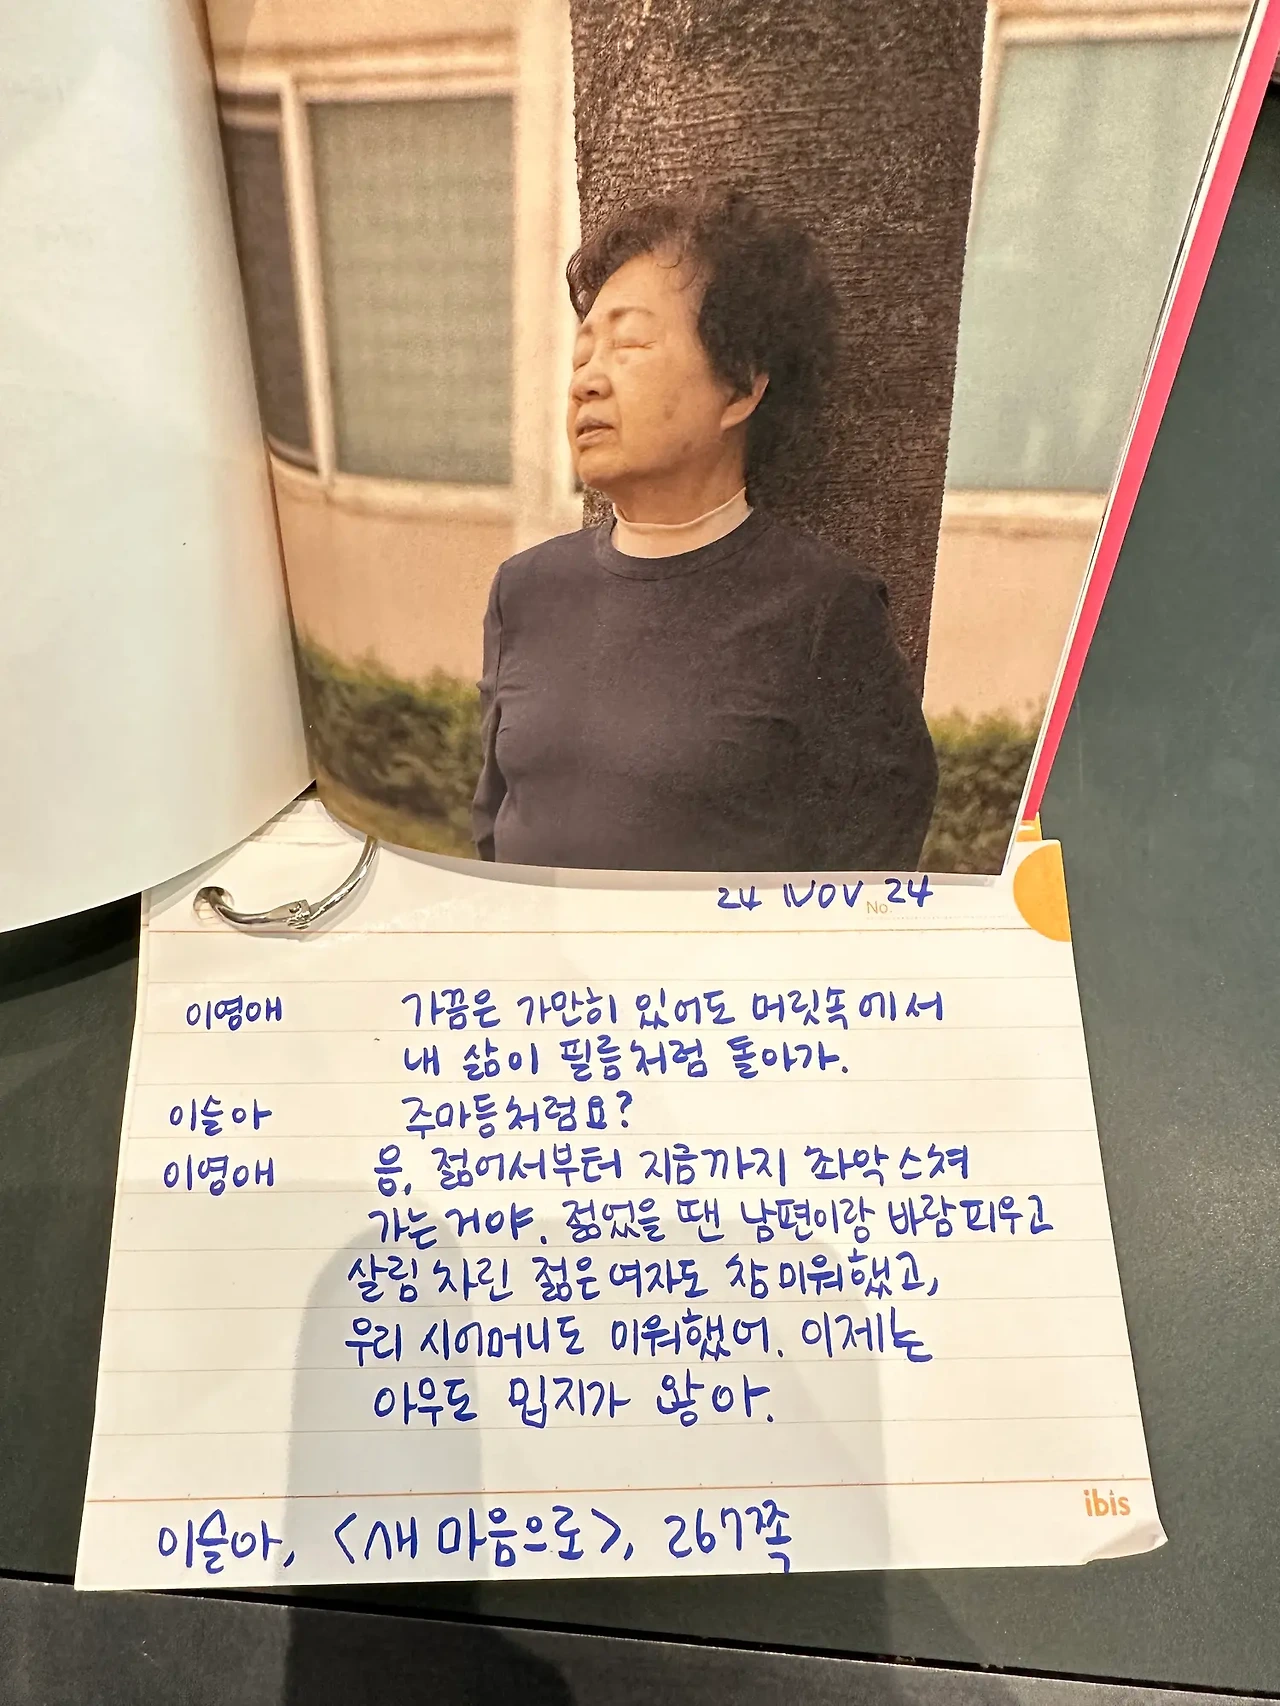 24 NOV 24
No.
이영애 가끔은 가만히 있어도 머릿속에서
내 삶이 필름처럼 돌아가.
이슬아 주마등처럼요?
이영애 응, 젊어서부터 지금까지 좌악 스쳐
가는 거야. 젊었을 땐 남편이랑 바람피우고
살림 차린 젊은 여자도 참 미워했고,
우리 시어머니도 미워했어. 이제는
아무도 밉지가 않아.
ibis
이슬아, <새 마음으로>, 267쪽